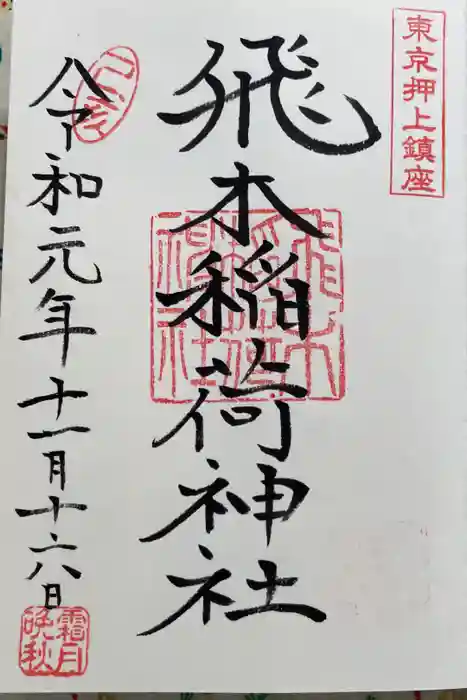 東京押上鎮座
飛木稲荷神社
令和元年十一月十六日
霜月
晩秋